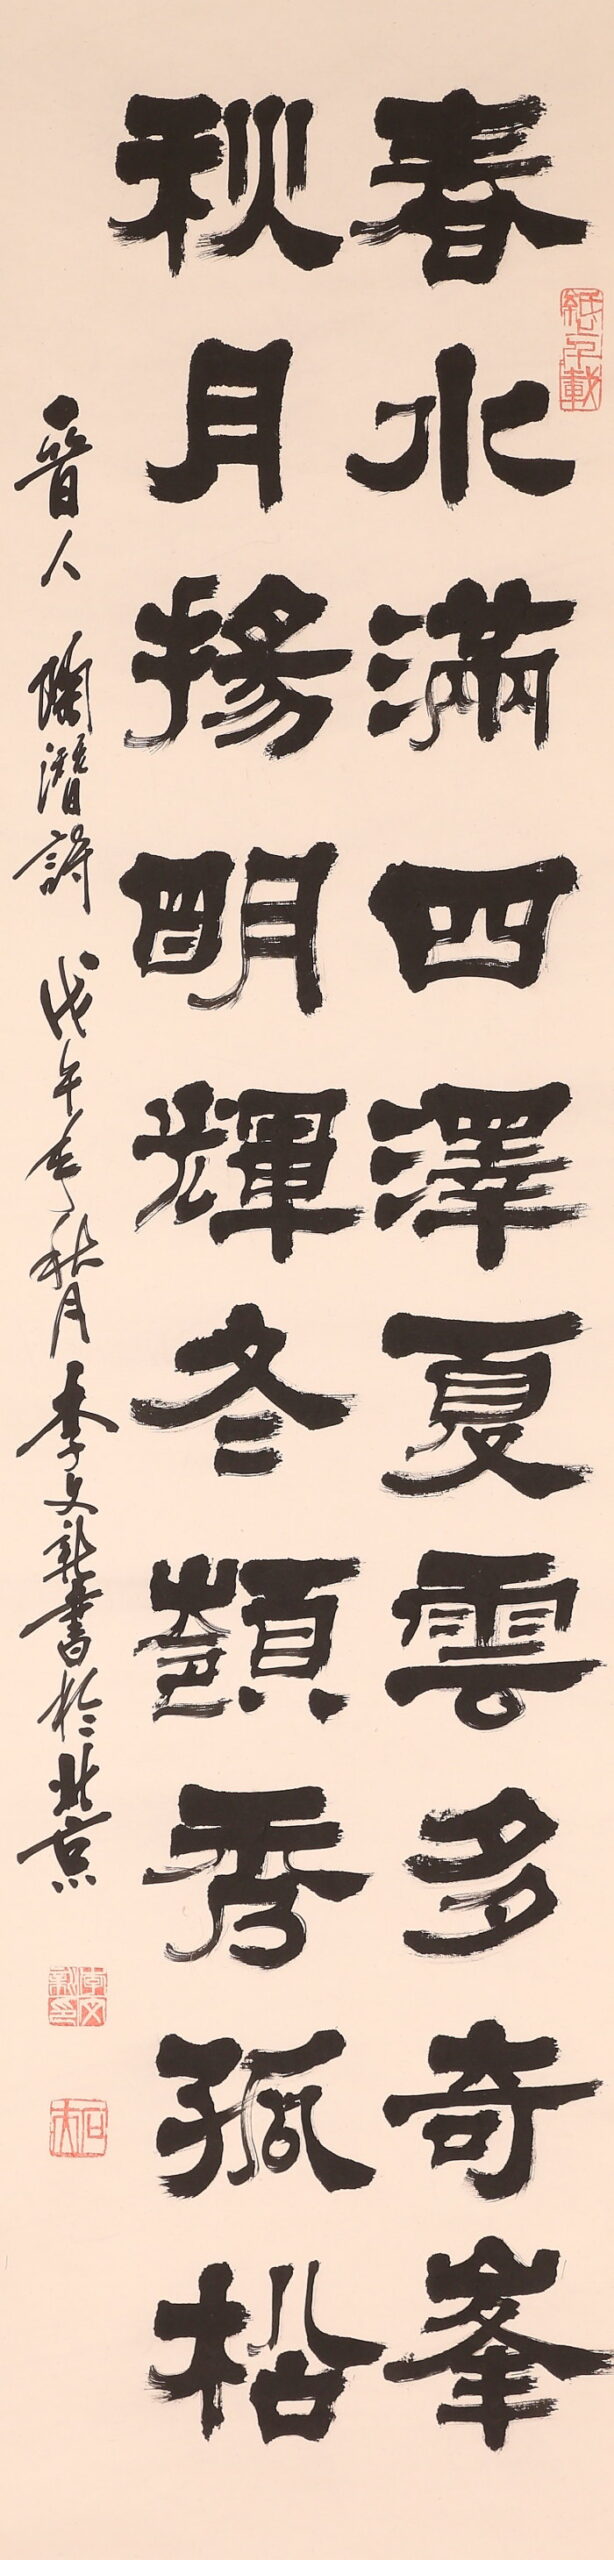 春水滿四澤夏雲多奇峯
秋月揚明輝冬嶺秀孤松
晉人陶潛詩戊午年秋月李文新書於北京
李文新印